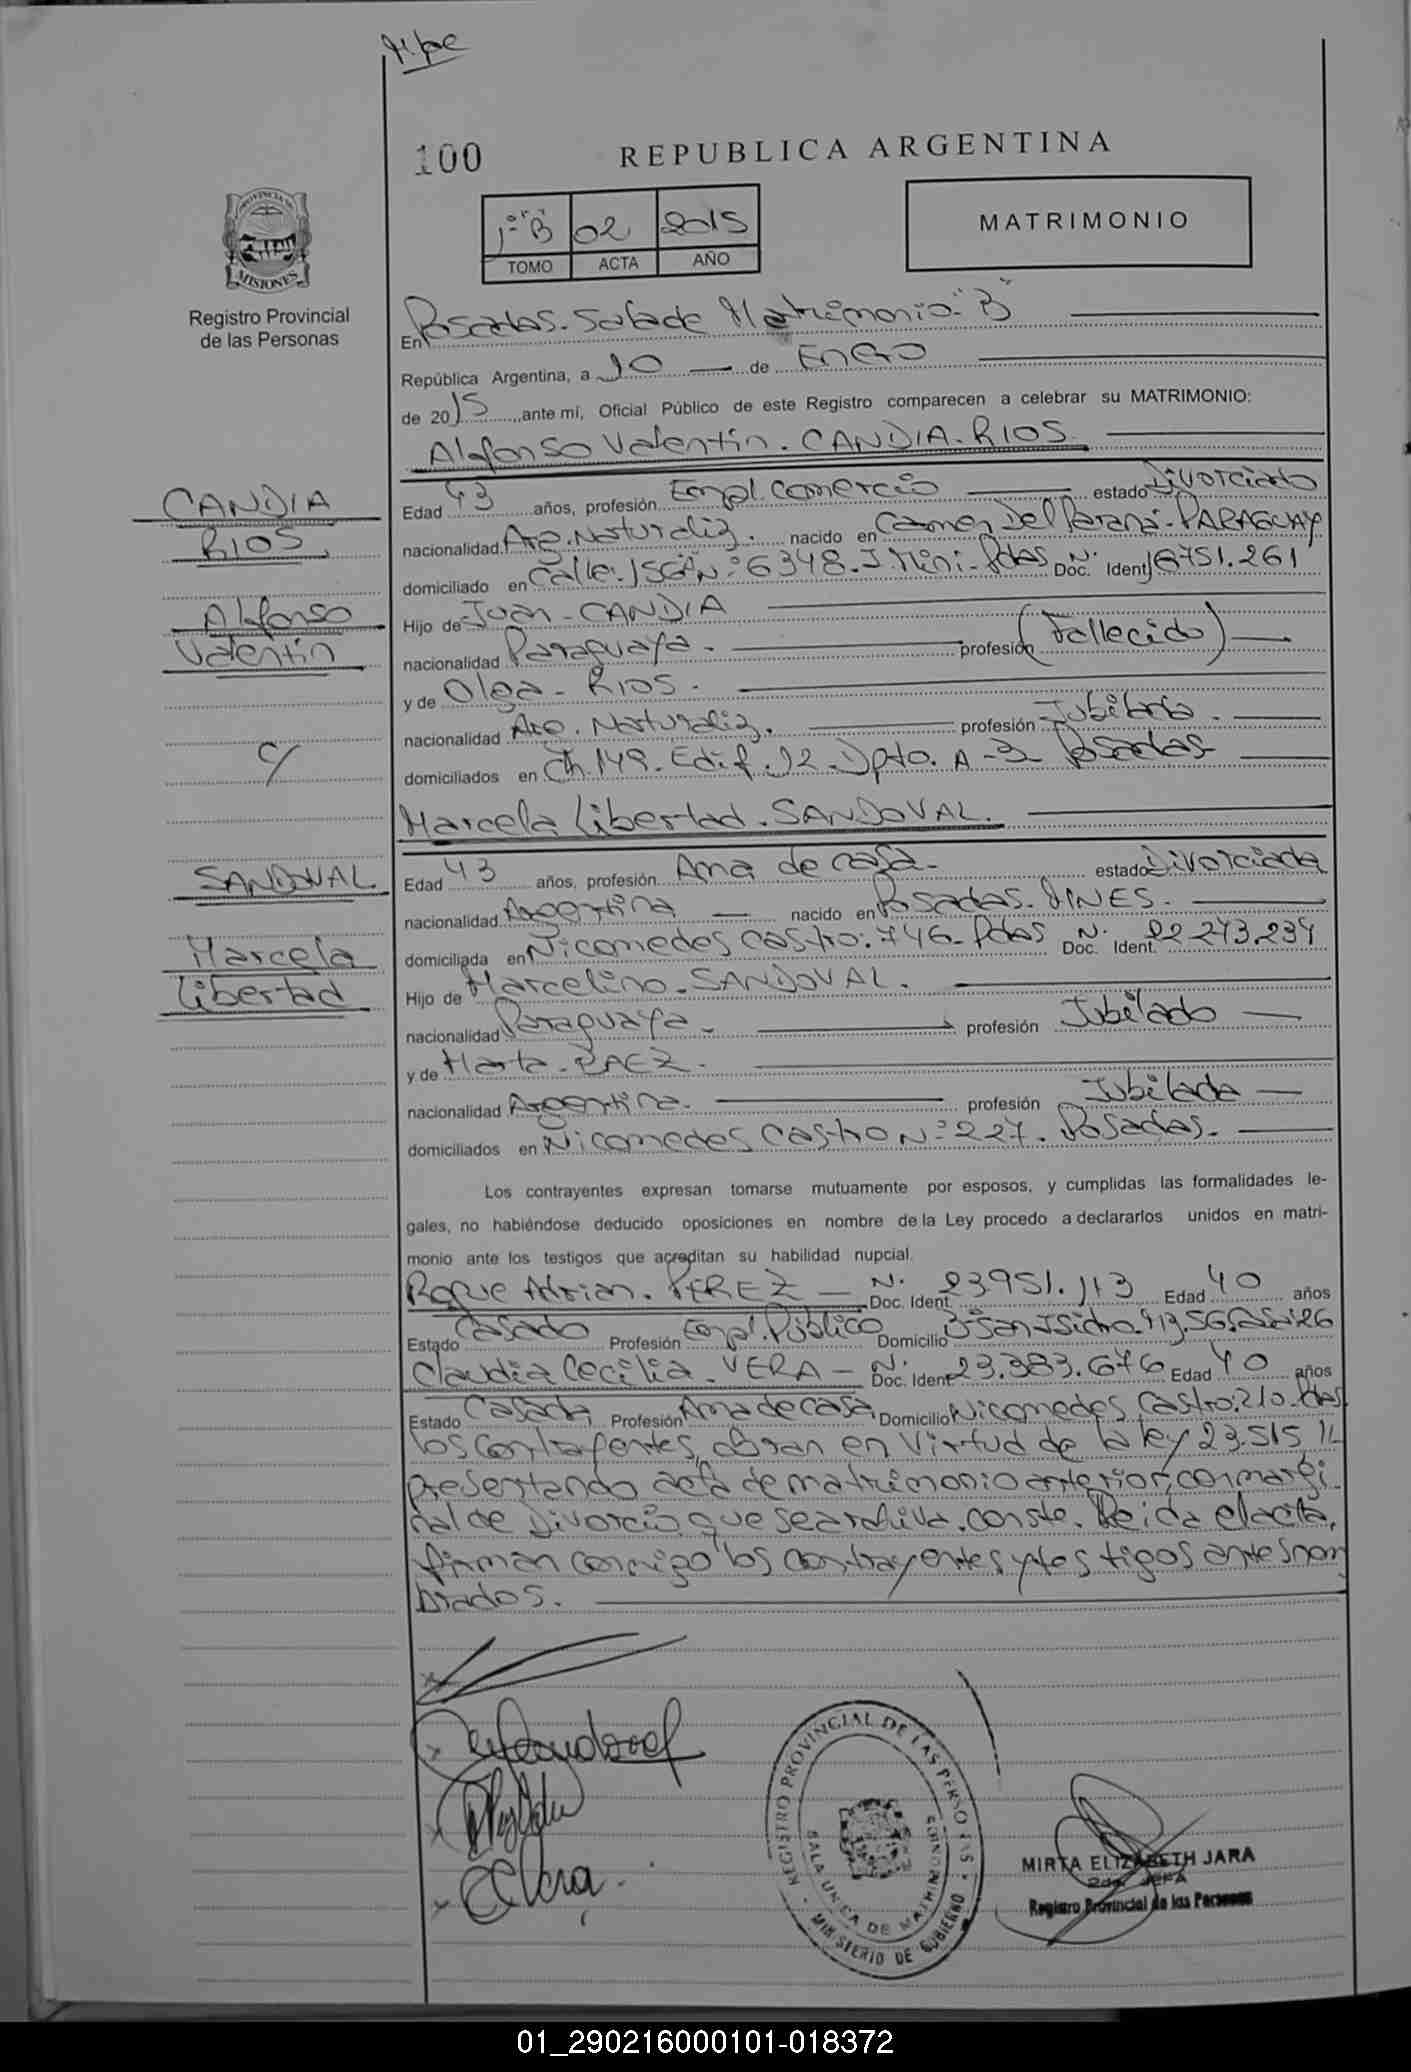 100
REPUBLICA ARGENTINA
1º "B" 02 2015
TOMO ACTA AÑO
MATRIMONIO
PROVINCIA DE
MISIONES
Registro Provincial
de las Personas
En Posadas. Sala de Matrimonio "B"
República Argentina, a 10 de Enero
de 2015, ante mi, Oficial Público de este Registro comparecen a celebrar su MATRIMONIO:
Alfonso Valentin. CANDIA. RIOS.
CANDIA
RIOS.
Alfonso
Valentin
c/
SANDOVAL
Marcela
Libertad
Edad 43 años, profesión Empl. Comercio estado Divorciado
nacionalidad Arg. Naturaliz. nacido en Carmen Del Paraná. PARAGUAY
domiciliado en Calle. 156 Nº 6348. I. Mini. Pdas N. Doc. Ident 16751.261
Hijo de Juan. CANDIA
nacionalidad Paraguaya. profesión (Fallecido)
y de Olga. RIOS.
nacionalidad Arg. Naturaliz. profesión Jubilada.
domiciliados en Ch. 149. Edif. 12. Dpto. A-3 Posadas
Marcela Libertad. SANDOVAL.
Edad 43 años, profesión Ama de casa. estado Divorciada
nacionalidad Argentina nacido en Posadas. MNES.
domiciliada en Nicomedes Castro: 746. Pdas N. Doc. Ident. 22.243.234
Hijo de Marcelino. SANDOVAL.
nacionalidad Paraguaya. profesión Jubilado
y de Marta. PAEZ.
nacionalidad Argentina. profesión Jubilada
domiciliados en Nicomedes Castro Nº 227. Posadas.
Los contrayentes expresan tomarse mutuamente por esposos, y cumplidas las formalidades le-
gales, no habiéndose deducido oposiciones en nombre de la Ley procedo a declararlos unidos en matri-
monio ante los testigos que acreditan su habilidad nupcial.
Roque Adrian. PEREZ N. Doc. Ident. 23.951.113 Edad 40 años
Estado Casado Profesión Empl. Público Domicilio Bº San Isidro. 413.
Claudia Cecilia. VERA N. Doc. Ident 23.383.676 Edad 40 años
Estado Casada Profesión Ama de casa Domicilio Nicomedes Castro: 210. Pdas
los contrayentes, obran en virtud de la ley 23.515 //
presentando acta de matrimonio anterior, con margi
nal de Divorcio que se archiva. conste. Leida el acta,
firman conmigo los contrayentes y testigos antes nom
brados.
REGISTRO PROVINCIAL DE LAS PERSONAS
SALA UNICA DE MATRIMONIOS
MINISTERIO DE GOBIERNO
MIRTA ELIZABETH JARA
2da. JEFA
Registro Provincial de las Personas
01_290216000101-018372